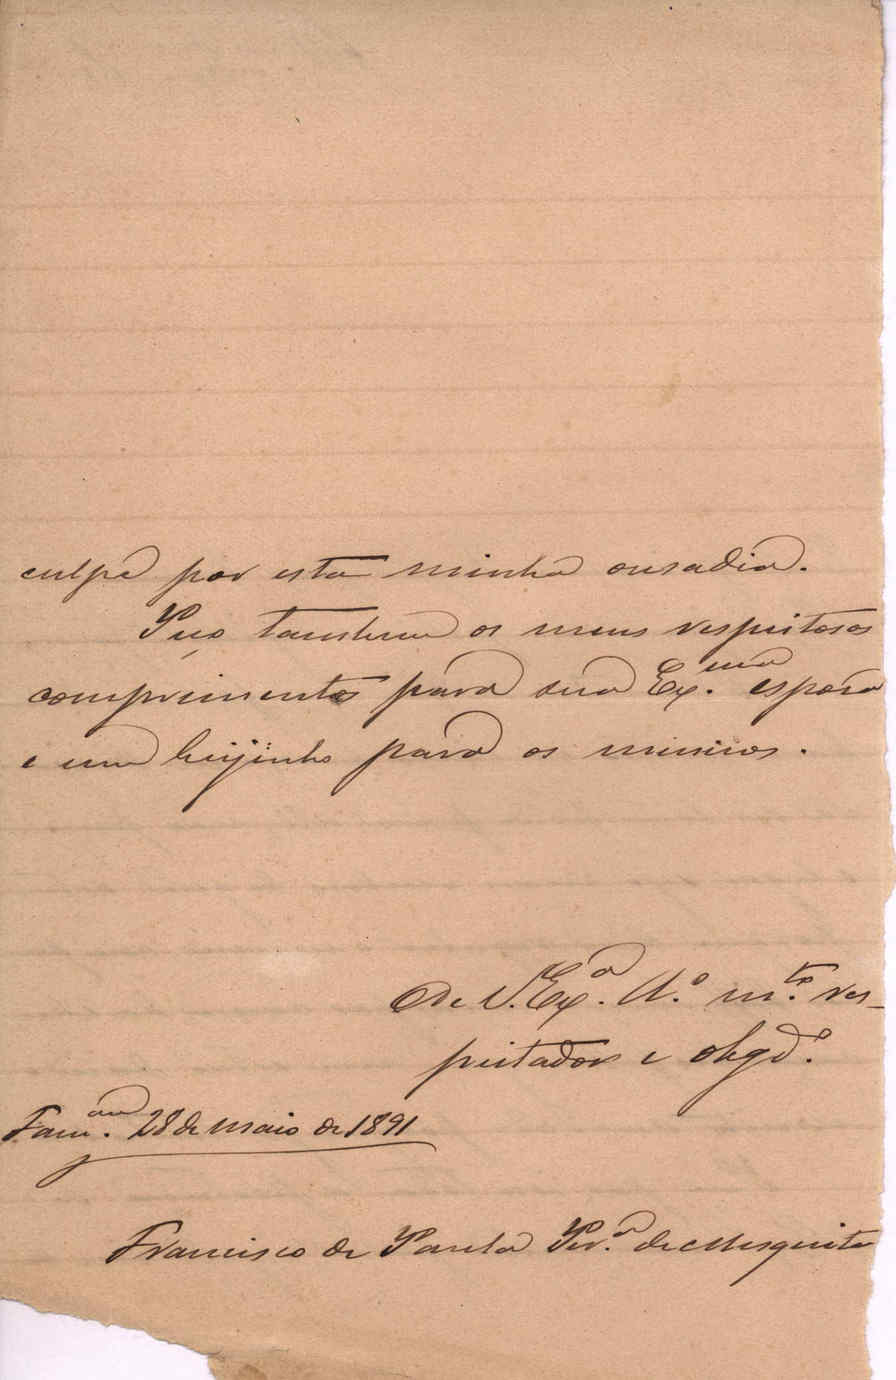 culpa por esta minha ousadia.
Peço tambem os meus respeitosos
comprimentos para sua Ex.ma espoza
e um beijinho para os meninos.
De V. Ex.a A.o m.to res-
peitador e obgd.o
Fam.am 28 de Maio de 1891
Francisco de Paula Per.a de Mesquita